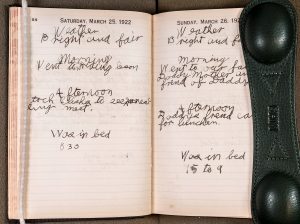 SATURDAY, MARCH 25, 1922
Weather
Bright and fair
Morning
Went
Afternoon
took
meet.
Was in bed
8 30
SUNDAY, MARCH 26, 1922
Weather
Bright and f
Morning
Went to
Daddy Mother
frend of Dadd
Afternoon
Daddys frend ca
for lunchen.
Was in bed
15 to 9